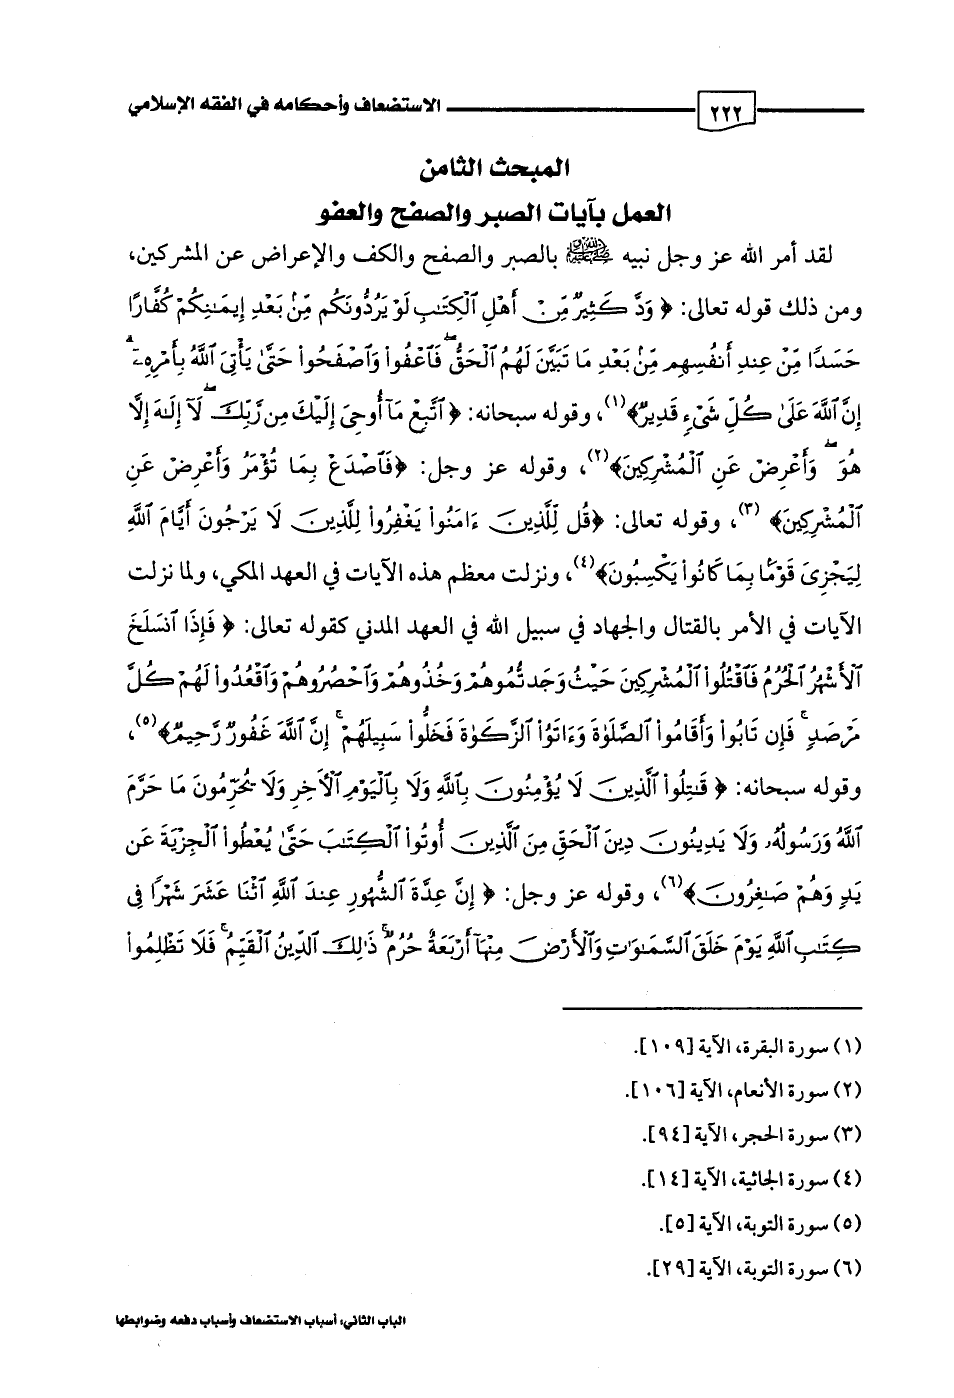 ٢٢٢ الاستضعاف وأحكامه في الفقه الإسلامي
المبحث الثامن
العمل بآيات الصبر والصفح والعفو
لقد أمر الله عز وجل نبيه ﷺ بالصبر والصفح والكف والإعراض عن المشركين،
ومن ذلك قوله تعالى: ﴿ وَدَّ كَثِيرٌ مِّنْ أَهْلِ ٱلْكِتَٰبِ لَوْ يَرُدُّونَكُم مِّنۢ بَعْدِ إِيمَٰنِكُمْ كُفَّارًا
حَسَدًا مِّنْ عِندِ أَنفُسِهِم مِّنۢ بَعْدِ مَا تَبَيَّنَ لَهُمُ ٱلْحَقُّ ۖ فَٱعْفُوا۟ وَٱصْفَحُوا۟ حَتَّىٰ يَأْتِىَ ٱللَّهُ بِأَمْرِهِۦٓ ۗ
إِنَّ ٱللَّهَ عَلَىٰ كُلِّ شَىْءٍ قَدِيرٌ﴾(١)، وقوله سبحانه: ﴿ ٱتَّبِعْ مَآ أُوحِىَ إِلَيْكَ مِن رَّبِّكَ ۖ لَآ إِلَٰهَ إِلَّا
هُوَ ۖ وَأَعْرِضْ عَنِ ٱلْمُشْرِكِينَ﴾(٢)، وقوله عز وجل: ﴿فَٱصْدَعْ بِمَا تُؤْمَرُ وَأَعْرِضْ عَنِ
ٱلْمُشْرِكِينَ﴾ (٣)، وقوله تعالى: ﴿قُل لِّلَّذِينَ ءَامَنُوا۟ يَغْفِرُوا۟ لِلَّذِينَ لَا يَرْجُونَ أَيَّامَ ٱللَّهِ
لِيَجْزِىَ قَوْمًۢا بِمَا كَانُوا۟ يَكْسِبُونَ﴾(٤)، ونزلت معظم هذه الآيات في العهد المكي، ولما نزلت
الآيات في الأمر بالقتال والجهاد في سبيل الله في العهد المدني كقوله تعالى: ﴿ فَإِذَا ٱنسَلَخَ
ٱلْأَشْهُرُ ٱلْحُرُمُ فَٱقْتُلُوا۟ ٱلْمُشْرِكِينَ حَيْثُ وَجَدتُّمُوهُمْ وَخُذُوهُمْ وَٱحْصُرُوهُمْ وَٱقْعُدُوا۟ لَهُمْ كُلَّ
مَرْصَدٍ ۚ فَإِن تَابُوا۟ وَأَقَامُوا۟ ٱلصَّلَوٰةَ وَءَاتَوُا۟ ٱلزَّكَوٰةَ فَخَلُّوا۟ سَبِيلَهُمْ ۚ إِنَّ ٱللَّهَ غَفُورٌ رَّحِيمٌ﴾(٥)،
وقوله سبحانه: ﴿ قَٰتِلُوا۟ ٱلَّذِينَ لَا يُؤْمِنُونَ بِٱللَّهِ وَلَا بِٱلْيَوْمِ ٱلْأَخِرِ وَلَا يُحَرِّمُونَ مَا حَرَّمَ
ٱللَّهُ وَرَسُولُهُۥ وَلَا يَدِينُونَ دِينَ ٱلْحَقِّ مِنَ ٱلَّذِينَ أُوتُوا۟ ٱلْكِتَٰبَ حَتَّىٰ يُعْطُوا۟ ٱلْجِزْيَةَ عَن
يَدٍ وَهُمْ صَٰغِرُونَ﴾(٦)، وقوله عز وجل: ﴿ إِنَّ عِدَّةَ ٱلشُّهُورِ عِندَ ٱللَّهِ ٱثْنَا عَشَرَ شَهْرًا فِى
كِتَٰبِ ٱللَّهِ يَوْمَ خَلَقَ ٱلسَّمَٰوَٰتِ وَٱلْأَرْضَ مِنْهَآ أَرْبَعَةٌ حُرُمٌ ۚ ذَٰلِكَ ٱلدِّينُ ٱلْقَيِّمُ ۚ فَلَا تَظْلِمُوا۟
(١) سورة البقرة، الآية [١٠٩].
(٢) سورة الأنعام، الآية [١٠٦].
(٣) سورة الحجر، الآية [٩٤].
(٤) سورة الجاثية، الآية [١٤].
(٥) سورة التوبة، الآية [٥].
(٦) سورة التوبة، الآية [٢٩].
الباب الثاني: أسباب الاستضعاف وأسباب دفعه وضوابطها